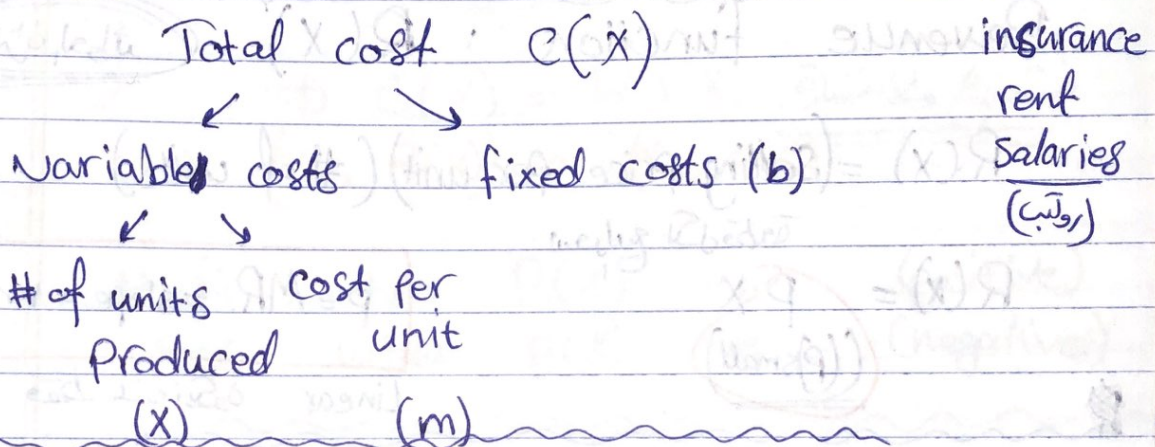 Total cost C(X)
insurance
rent
salaries
(رواتب)
Variable costs
fixed costs (b)
# of units produced
(X)
cost per unit
(m)